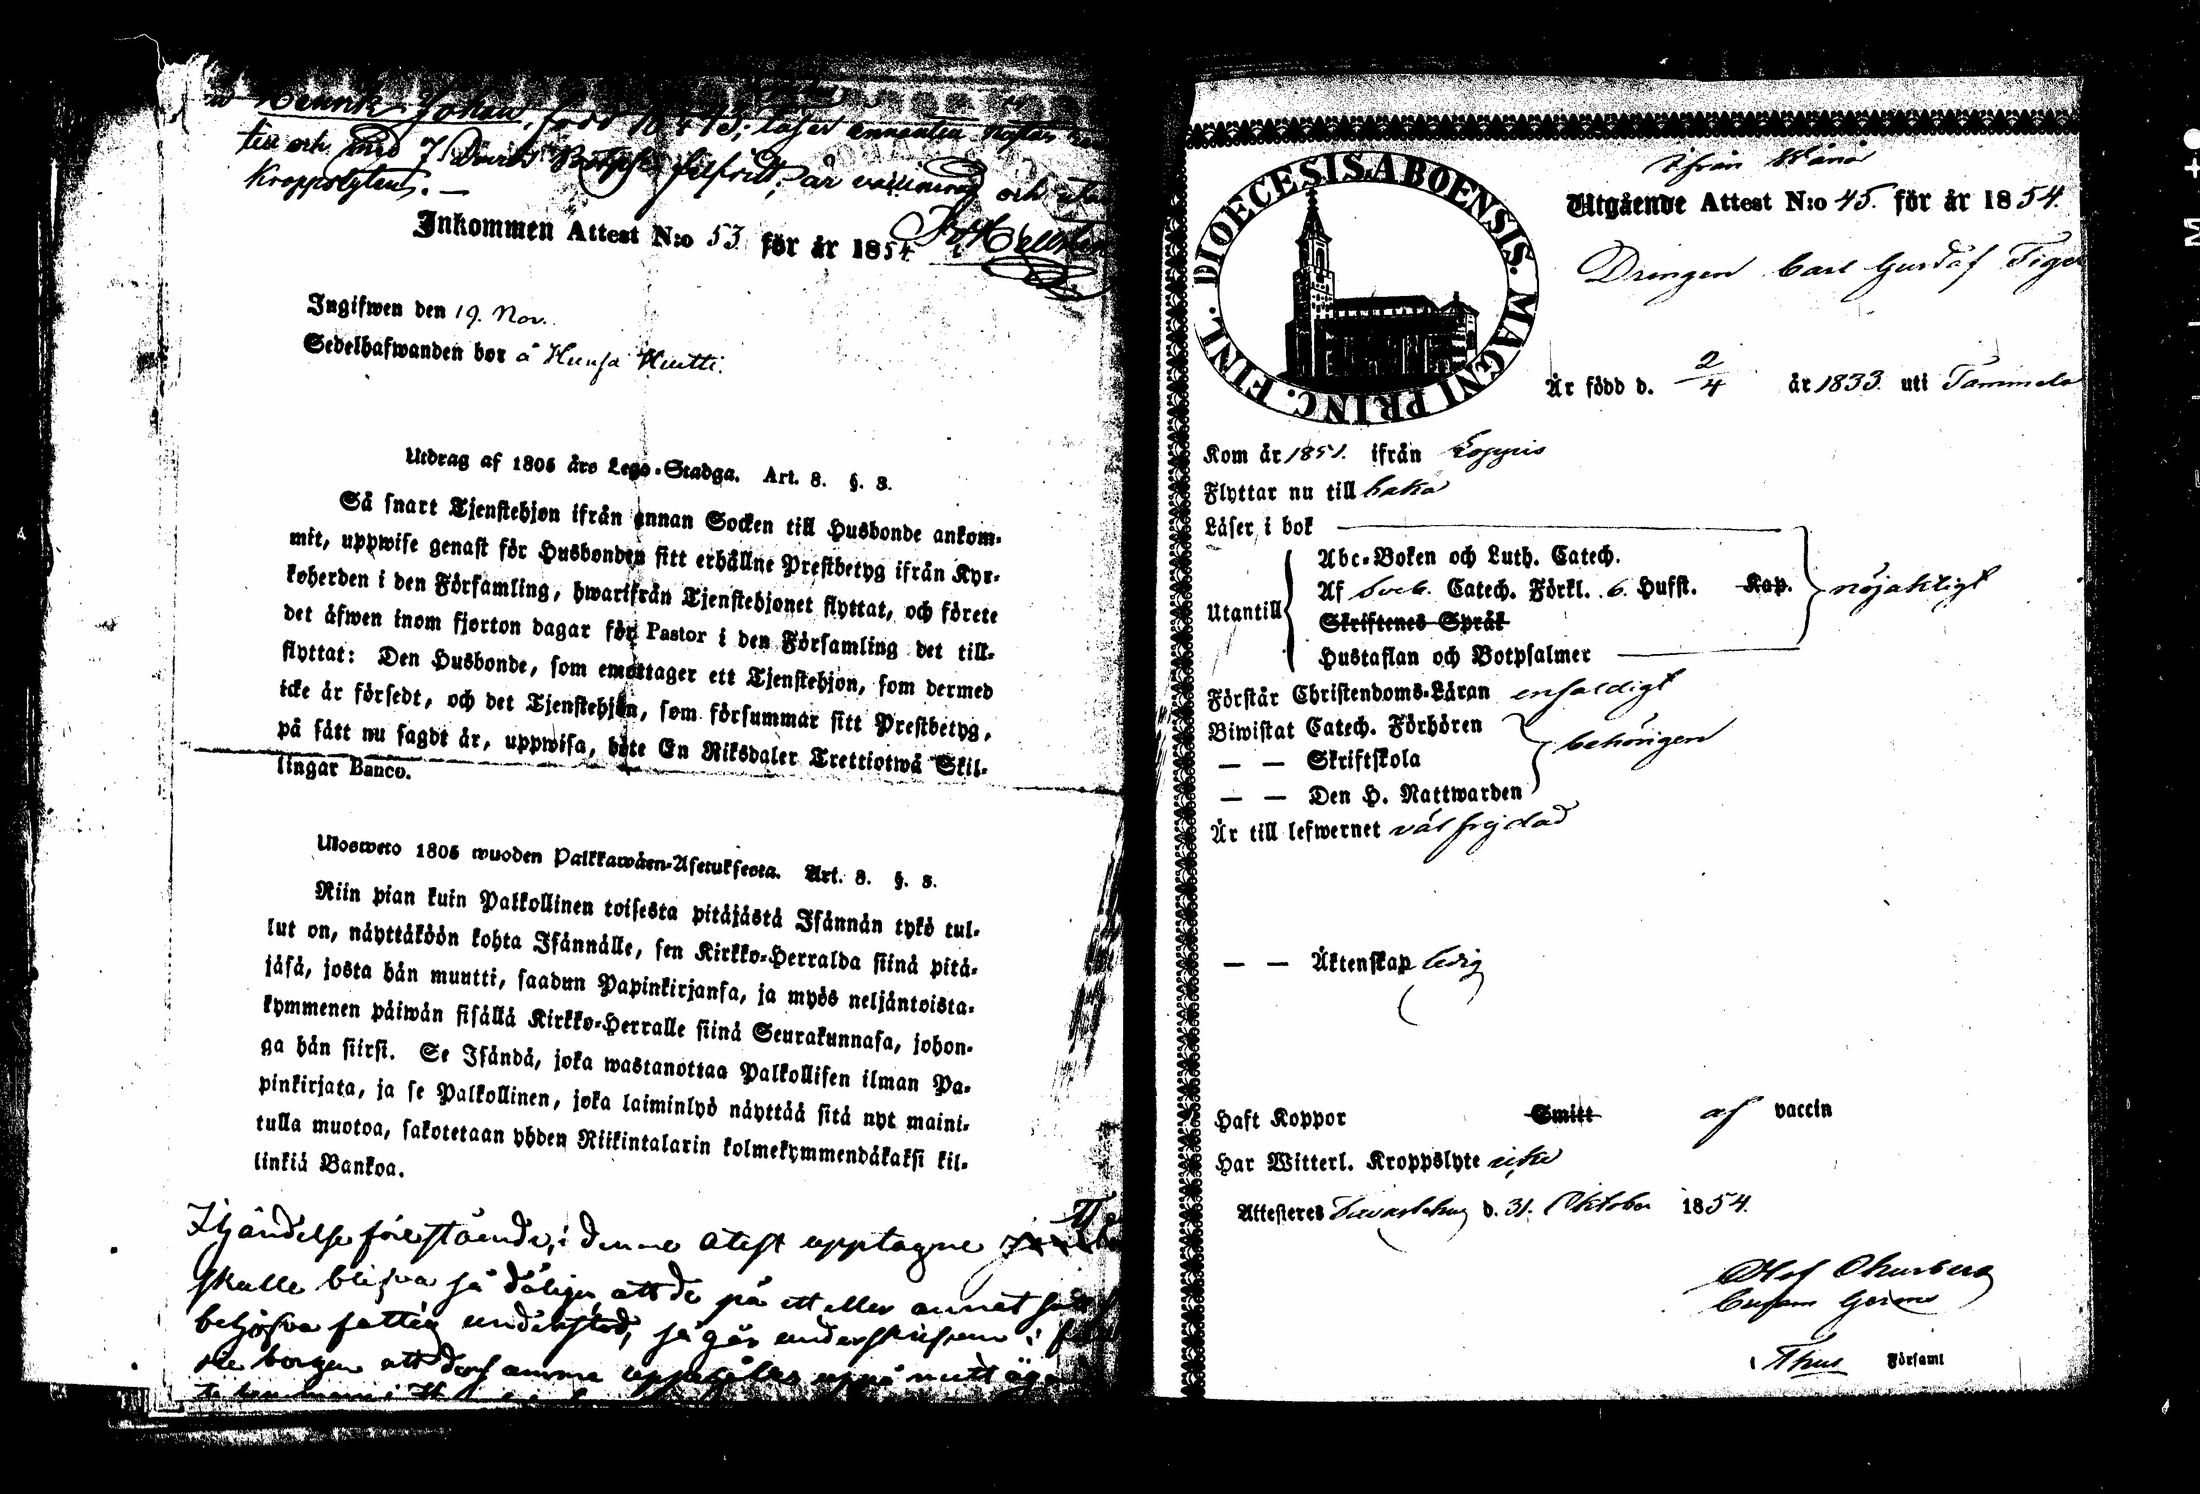 Henrik Johan, född 18 4/4 43; läser
till och med 7 Davids Botps. felfritt, är vaccinerad och utan
Kroppslyten. —
Inkommen Attest N:o 53 för år 1854
Ingifwen den 19. Nov.
Sedelhafwanden bor å Hunsa Hutti.
Utdrag af 1805 års Lego-Stadga. Art. 8. §. 3.
Så snart Tjenstehjon ifrån annan Socken till Husbonde ankom-
mit, uppwise genast för Husbonden sitt erhållne Prestbetyg ifrån Kyr-
koherden i den Församling, hwarifrån Tjenstehjonet flyttat, och förete
det äfwen inom fjorton dagar för Pastor i den Församling det till-
flyttat: Den Husbonde, som emottager ett Tjenstehjon, som dermed
icke är försedt, och det Tjenstehjon, som försummar sitt Prestbetyg,
på sätt nu sagdt är, uppwisa, böte En Riksdaler Trettiotwå Skil-
lingar Banco.
Ulosweto 1805 wuoden Palkkawäen-Asetuksesta. Art. 8. §. 3.
Niin pian kuin Palkollinen toisesta pitäjästä Isännän tykö tul-
lut on, näyttäköön kohta Isännälle, sen Kirkko-Herralda siinä pitä-
jäsä, josta hän muutti, saadun Papinkirjansa, ja myös neljäntoista-
kymmenen päiwän sisällä Kirkko-Herralle siinä Seurakunnasa, johon-
ga hän siirsi. Se Isändä, joka wastanottaa Palkollisen ilman Pa-
pinkirjata, ja se Palkollinen, joka laiminlyö näyttää sitä nyt maini-
tulla muotoa, sakotetaan yhden Riikintalarin kolmekymmendäkaksi kil-
linkiä Bankoa.
I händelse förestående, i denne atest upptagne
skulle blifva så dålige, att de på ett eller annat sätt
behöfva fattig understöd, så går underskrifven i
borgen att desamma uppehålles uppå mitt
DIOECESIS ABOENSIS. MAGNI PRINC. FINL.
ifrån Wånå
Utgående Attest N:o 45. för år 1854.
Drengen Carl Gustaf Tiger
Är född d. 2/4 år 1833. uti Tammela
Kom år 1851. ifrån Loppis
Flyttar nu till baka
Läser i bok
Utantill
Abc-Boken och Luth. Catech.
Af Sveb. Catech. Förkl. 6. Hufst. Kap.
Skriftenes Språk
Hustaflan och Botpsalmer
nöjaktigt
Förstår Christendoms-Läran enfaldigt
Biwistat Catech. Förhören
— — Skriftskola
— — Den H. Nattwarden
behörigen
Är till lefwernet väl frejdad
— — Äktenskap ledig
Haft Koppor Smitt af vaccin
Har Witterl. Kroppslyte icke
Attesteres Tavastehus d. 31. Oktober 1854.
Församl